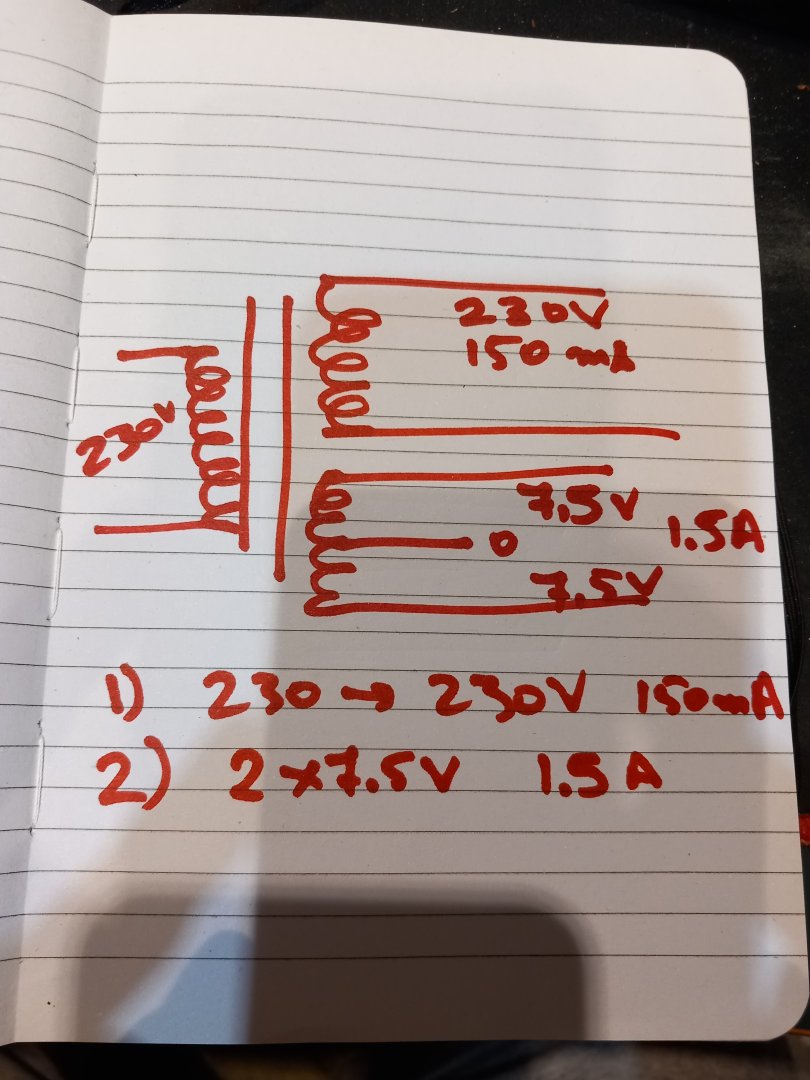 230V
150 mA
230V
7.5V
1.5A
0
7.5V
1) 230 → 230V 150mA
2) 2x7.5V 1.5A